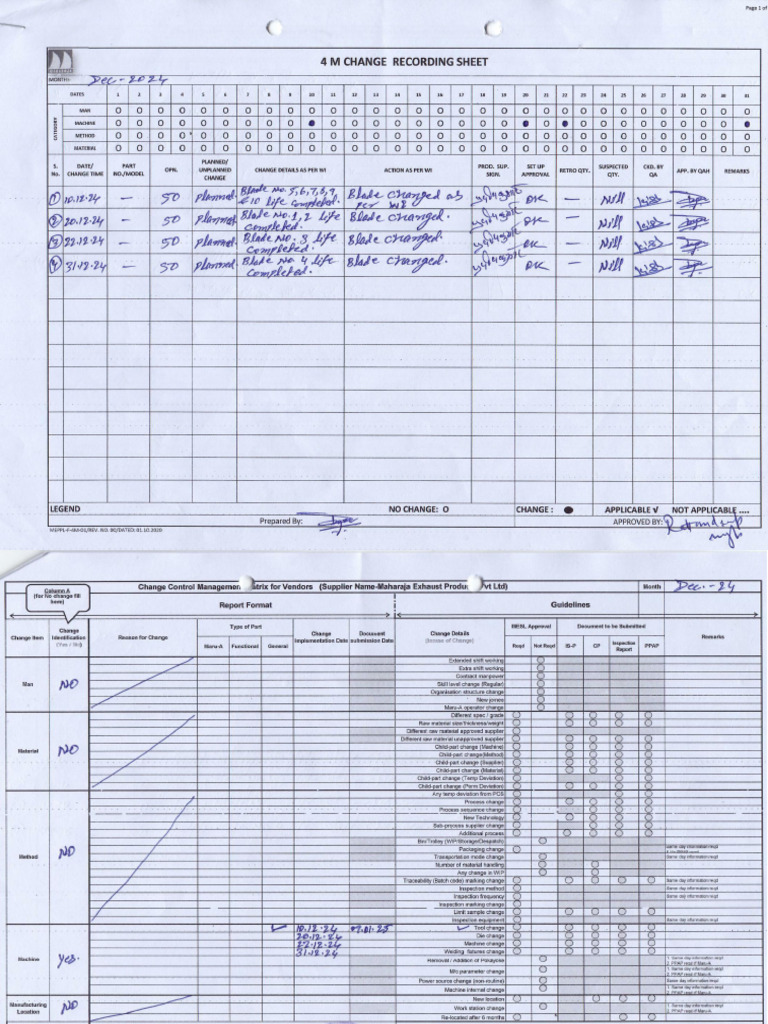 Page 1 of
4 M CHANGE RECORDING SHEET
MONTH:- Dec-2024
DATES 1 2 3 4 5 6 7 8 9 10 11 12 13 14 15 16 17 18 19 20 21 22 23 24 25 26 27 28 29 30 31
CATEGORY
MAN O O O O O O O O O O O O O O O O O O O O O O O O O O O O O O O
MACHINE O O O O O O O O O ● O O O O O O O O O ● O ● O O O O O O O O ●
METHOD O O O O O O O O O O O O O O O O O O O O O O O O O O O O O O O
MATERIAL O O O O O O O O O O O O O O O O O O O O O O O O O O O O O O O
S. No. DATE/ CHANGE TIME PART NO./MODEL OPN. PLANNED/ UNPLANNED CHANGE CHANGE DETAILS AS PER WI ACTION AS PER WI PROD. SUP. SIGN. SET UP APPROVAL RETRO QTY. SUSPECTED QTY. CKD. BY QA APP. BY QAH REMARKS
① 10.12.24 — 50 Planned Blade No. 5,6,7,8,9, & 10 life completed. Blade changed as per WI OK — Nill
② 20.12.24 — 50 Planned Blade No. 1,2 life completed. Blade changed. OK — Nill
③ 22.12.24 — 50 Planned Blade No. 3 life completed. Blade changed. OK — Nill
④ 31.12.24 — 50 Planned Blade No 4 life completed. Blade changed. OK — Nill
LEGEND NO CHANGE: O CHANGE : ● APPLICABLE √ NOT APPLICABLE ....
Prepared By: APPROVED BY:
MEPPL-F-4M-01/REV. NO. 00/DATED: 01.10.2020
Column A (for No change fill here)
Change Control Management Matrix for Vendors (Supplier Name-Maharaja Exhaust Product Pvt Ltd) Month Dec.-24
Report Format Guidelines
Change Item Change Identification (Yes / No) Reason for Change Type of Part Change Implementation Date Document submission Date Change Details (Incase of Change) Approval Document to be Submitted Remarks
Maru-A Functional General Reqd Not Reqd IS-P CP Inspection Report PPAP
Man NO
Extended shift working
Extra shift working
Contract manpower
Skill level change (Regular)
Organisation structure change
New joinee
Maru-A operator change
Material NO
Different spec / grade
Raw material size/thickness/weight
Different raw material approved supplier
Different raw material unapproved supplier
Child-part change (Machine)
Child-part change(Method)
Child-part change (Supplier)
Child-part change (Material)
Child-part change (Temp Deviation)
Child-part change (Perm Deviation)
Method NO
Any temp deviation from PCS
Process change
Process sequence change
New Technology
Sub-process supplier change
Additional process
Bin/Trolley (WIP/Storage/Despatch)
Packaging change
Transportation mode change Same day information reqd
Number of material handling
Any change in WIP
Traceability (Batch code) marking change Same day information reqd
Inspection method Same day information reqd
Inspection frequency
Inspection marking change
Limit sample change
Inspection equipment Same day information reqd
Machine Yes.
✓ 10.12.24 07.01.25 ✓ Tool change
20.12.24 Die change
22.12.24 Machine change
31.12.24 Welding fixtures change
Removal / Addition of Pokayoke 1. Same day information reqd 2. PPAP reqd if Maru-A
M/c parameter change 1. Same day information reqd 2. PPAP reqd if Maru-A
Power source change (non-routine) Same day information reqd
Machine internal change 1. Same day information reqd 2. PPAP reqd if Maru-A
Manufacturing Location NO
New location
Work station change 1. Same day information reqd 2. PPAP reqd if Maru-A
Re-located after 6 months